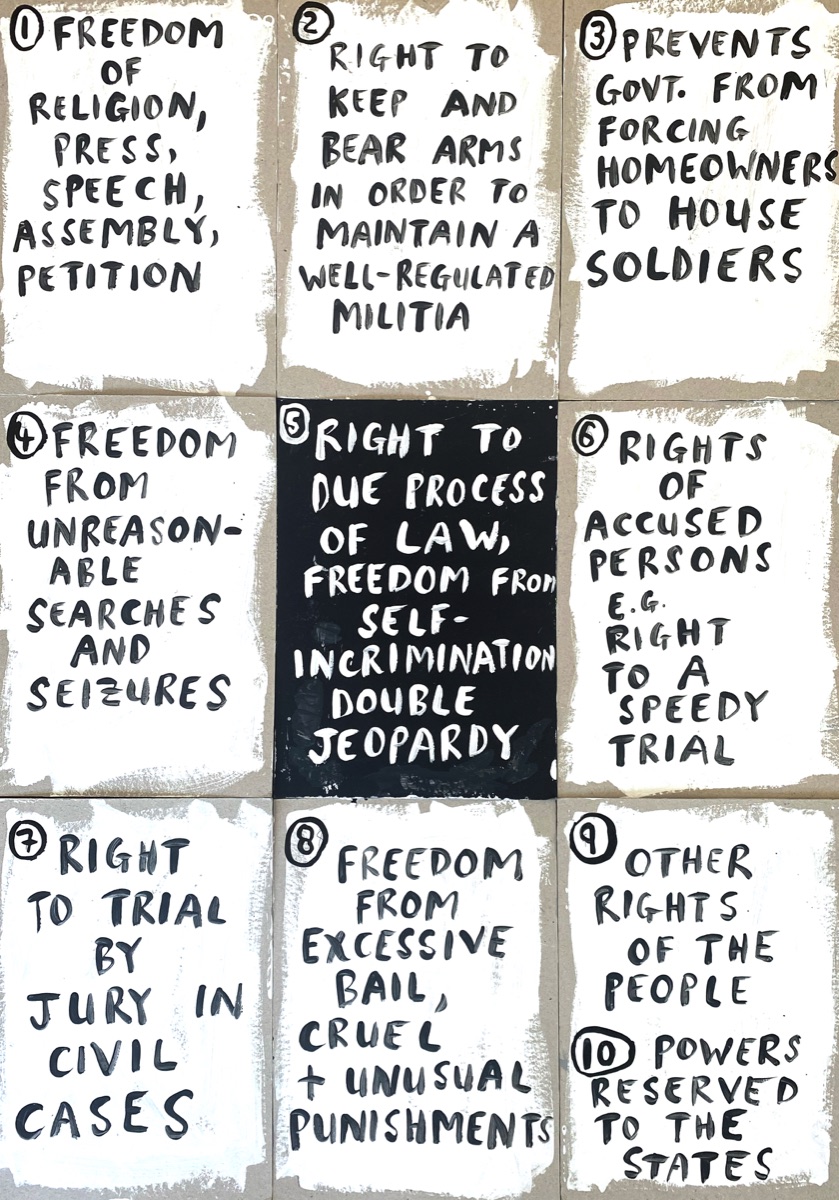 ① FREEDOM
OF
RELIGION,
PRESS,
SPEECH,
ASSEMBLY,
PETITION
②
RIGHT TO
KEEP AND
BEAR ARMS
IN ORDER TO
MAINTAIN A
WELL-REGULATED
MILITIA
③ PREVENTS
GOVT. FROM
FORCING
HOMEOWNERS
TO HOUSE
SOLDIERS
④ FREEDOM
FROM
UNREASON-
ABLE
SEARCHES
AND
SEIZURES
⑤ RIGHT TO
DUE PROCESS
OF LAW,
FREEDOM FROM
SELF-
INCRIMINATION
DOUBLE
JEOPARDY
⑥ RIGHTS
OF
ACCUSED
PERSONS
E.G.
RIGHT
TO A
SPEEDY
TRIAL
⑦ RIGHT
TO TRIAL
BY
JURY IN
CIVIL
CASES
⑧ FREEDOM
FROM
EXCESSIVE
BAIL,
CRUEL
+ UNUSUAL
PUNISHMENTS
⑨ OTHER
RIGHTS
OF THE
PEOPLE
⑩ POWERS
RESERVED
TO THE
STATES